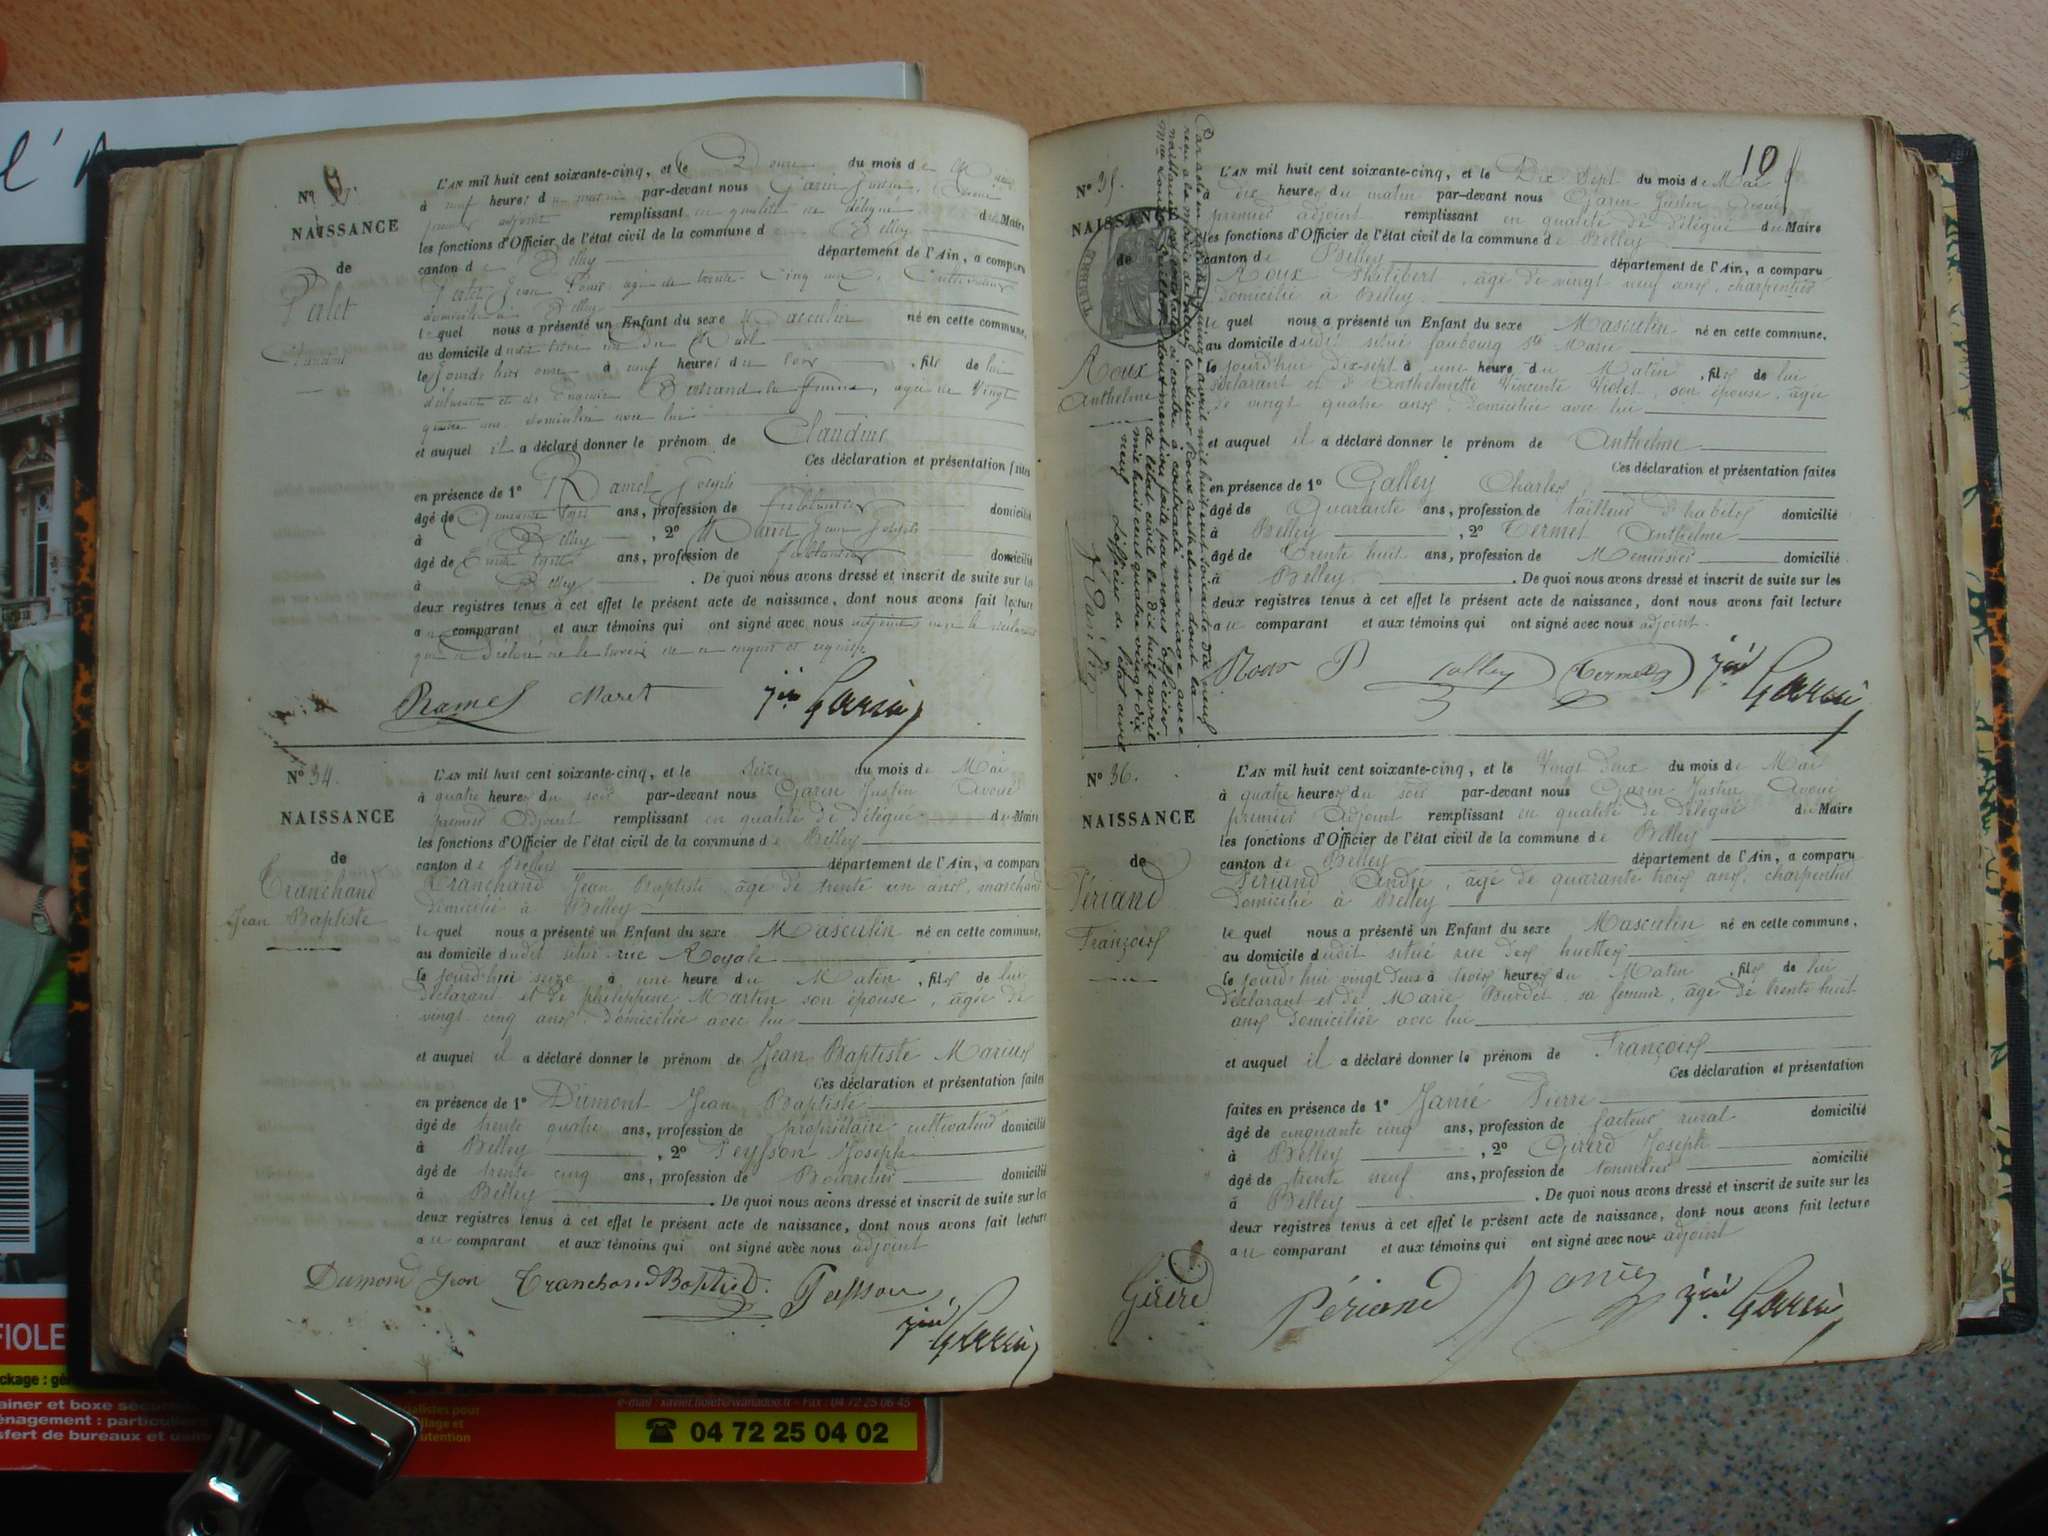 N°
NAISSANCE
de
Claudius
L'AN mil huit cent soixante-cinq, et le Douze du mois de
à neuf heures du matin par-devant nous Garin Justin, Avoué
premier adjoint remplissant en qualité de délégué du Maire
les fonctions d'Officier de l'état civil de la commune de Belley
canton de Belley département de l'Ain, a comparu
Jean Louis âgé de trente cinq ans, Cultivateur
domicilié à Belley
lequel nous a présenté un Enfant du sexe Masculin né en cette commune,
au domicile du
le jourd'hier onze à neuf heures du soir, fils de lui
déclarant et de Bertrand sa femme, âgée de vingt
quatre ans domiciliée avec lui
et auquel il a déclaré donner le prénom de Claudius
Ces déclaration et présentation faites
en présence de 1° Ramel Joseph
âgé de ans, profession de ferblantier domicilié
à Belley, 2° Maret Jean Joseph
âgé de ans, profession de ferblantier domicilié
à Belley. De quoi nous avons dressé et inscrit de suite sur les
deux registres tenus à cet effet le présent acte de naissance, dont nous avons fait lecture
au comparant et aux témoins qui ont signé avec nous adjoint, non le déclarant
qui a déclaré ne le savoir de ce enquis et requis
Ramel Maret Jin Garin
N° 34.
NAISSANCE
de
Tranchand
Jean Baptiste
L'AN mil huit cent soixante-cinq, et le seize du mois de Mai
à quatre heures du soir par-devant nous Garin Justin Avoué
premier adjoint remplissant en qualité de délégué du Maire
les fonctions d'Officier de l'état civil de la commune de Belley
canton de Belley département de l'Ain, a comparu
Tranchand Jean Baptiste, âgé de trente un ans, marchand
domicilié à Belley
lequel nous a présenté un Enfant du sexe Masculin né en cette commune,
au domicile dudit situé rue Royale
le jourd'hui seize à une heure du Matin, fils de lui
déclarant et de philippine Martin son épouse, âgée de
vingt cinq ans, domiciliée avec lui
et auquel il a déclaré donner le prénom de Jean Baptiste Marius
Ces déclaration et présentation faites
en présence de 1° Dumont Jean Baptiste
âgé de trente quatre ans, profession de propriétaire cultivateur domicilié
à Belley, 2° Peysson Joseph
âgé de trente cinq ans, profession de Bourrelier domicilié
à Belley. De quoi nous avons dressé et inscrit de suite sur les
deux registres tenus à cet effet le présent acte de naissance, dont nous avons fait lecture
au comparant et aux témoins qui ont signé avec nous adjoint
Dumond Jean Tranchand Baptist. Peysson
Jin Garin
10
N° 35.
NAISSANCE
de
TIMBRE
Roux
Anthelme
L'AN mil huit cent soixante-cinq, et le Dix sept du mois de Mai
à dix heures du matin par-devant nous Garin Justin Avoué
premier adjoint remplissant en qualité de délégué du Maire
les fonctions d'Officier de l'état civil de la commune de Belley
canton de Belley département de l'Ain, a comparu
Roux Philibert, âgé de vingt neuf ans, charpentier
domicilié à Belley
lequel nous a présenté un Enfant du sexe Masculin né en cette commune,
au domicile dudit situé faubourg Ste Marie
le jourd'hui dix-sept à une heure du Matin, fils de lui
déclarant et d'Anthelmette Vincente Violet, son épouse, âgée
de vingt quatre ans, domiciliée avec lui
et auquel il a déclaré donner le prénom de Anthelme
Ces déclaration et présentation faites
en présence de 1° Galley Charles
âgé de Quarante ans, profession de tailleur d'habits domicilié
à Belley, 2° Termet Anthelme
âgé de Trente huit ans, profession de Menuisier domicilié
à Belley. De quoi nous avons dressé et inscrit de suite sur les
deux registres tenus à cet effet le présent acte de naissance, dont nous avons fait lecture
au comparant et aux témoins qui ont signé avec nous adjoint.
Roux P Galley Termet Jin Garin
Par acte en date du quinze avril mil huit cent quatre vingt dix neuf
reçu à la mairie de le sieur Roux Anthelme dont la
naissance est constatée ci contre a contracté mariage avec
dont mention faite par nous officier
de l'état civil le dix huit avril
mil huit cent quatre vingt dix
neuf L'officier de l'état civil
N° 36.
NAISSANCE
de
Périand
François
L'AN mil huit cent soixante-cinq, et le Vingt deux du mois de Mai
à quatre heures du soir par-devant nous Garin Justin Avoué
premier adjoint remplissant en qualité de délégué du Maire
les fonctions d'Officier de l'état civil de la commune de Belley
canton de Belley département de l'Ain, a comparu
Périand André, âgé de quarante trois ans, charpentier
domicilié à Belley
lequel nous a présenté un Enfant du sexe Masculin né en cette commune,
au domicile dudit situé rue des huttes
le jourd'hui vingt deux à trois heures du Matin, fils de lui
déclarant et de Marie Burdet, sa femme, âgée de trente huit
ans domiciliée avec lui
et auquel il a déclaré donner le prénom de François
Ces déclaration et présentation
faites en présence de 1° Janié Pierre
âgé de cinquante cinq ans, profession de facteur rural domicilié
à Belley, 2° Girerd Joseph
âgé de trente neuf ans, profession de tonnelier domicilié
à Belley. De quoi nous avons dressé et inscrit de suite sur les
deux registres tenus à cet effet le présent acte de naissance, dont nous avons fait lecture
au comparant et aux témoins qui ont signé avec nous adjoint
Girerd Périand Janiez Jin Garin
FIOLE
ckage : gé
ainer et boxe sécuri
énagement : particuliers
sfert de bureaux et usin
cialistes pour
llage et
utention
e-mail : xavier.fiolet@wanadoo.fr - Fax : 04 72 25 06 45
☎ 04 72 25 04 02